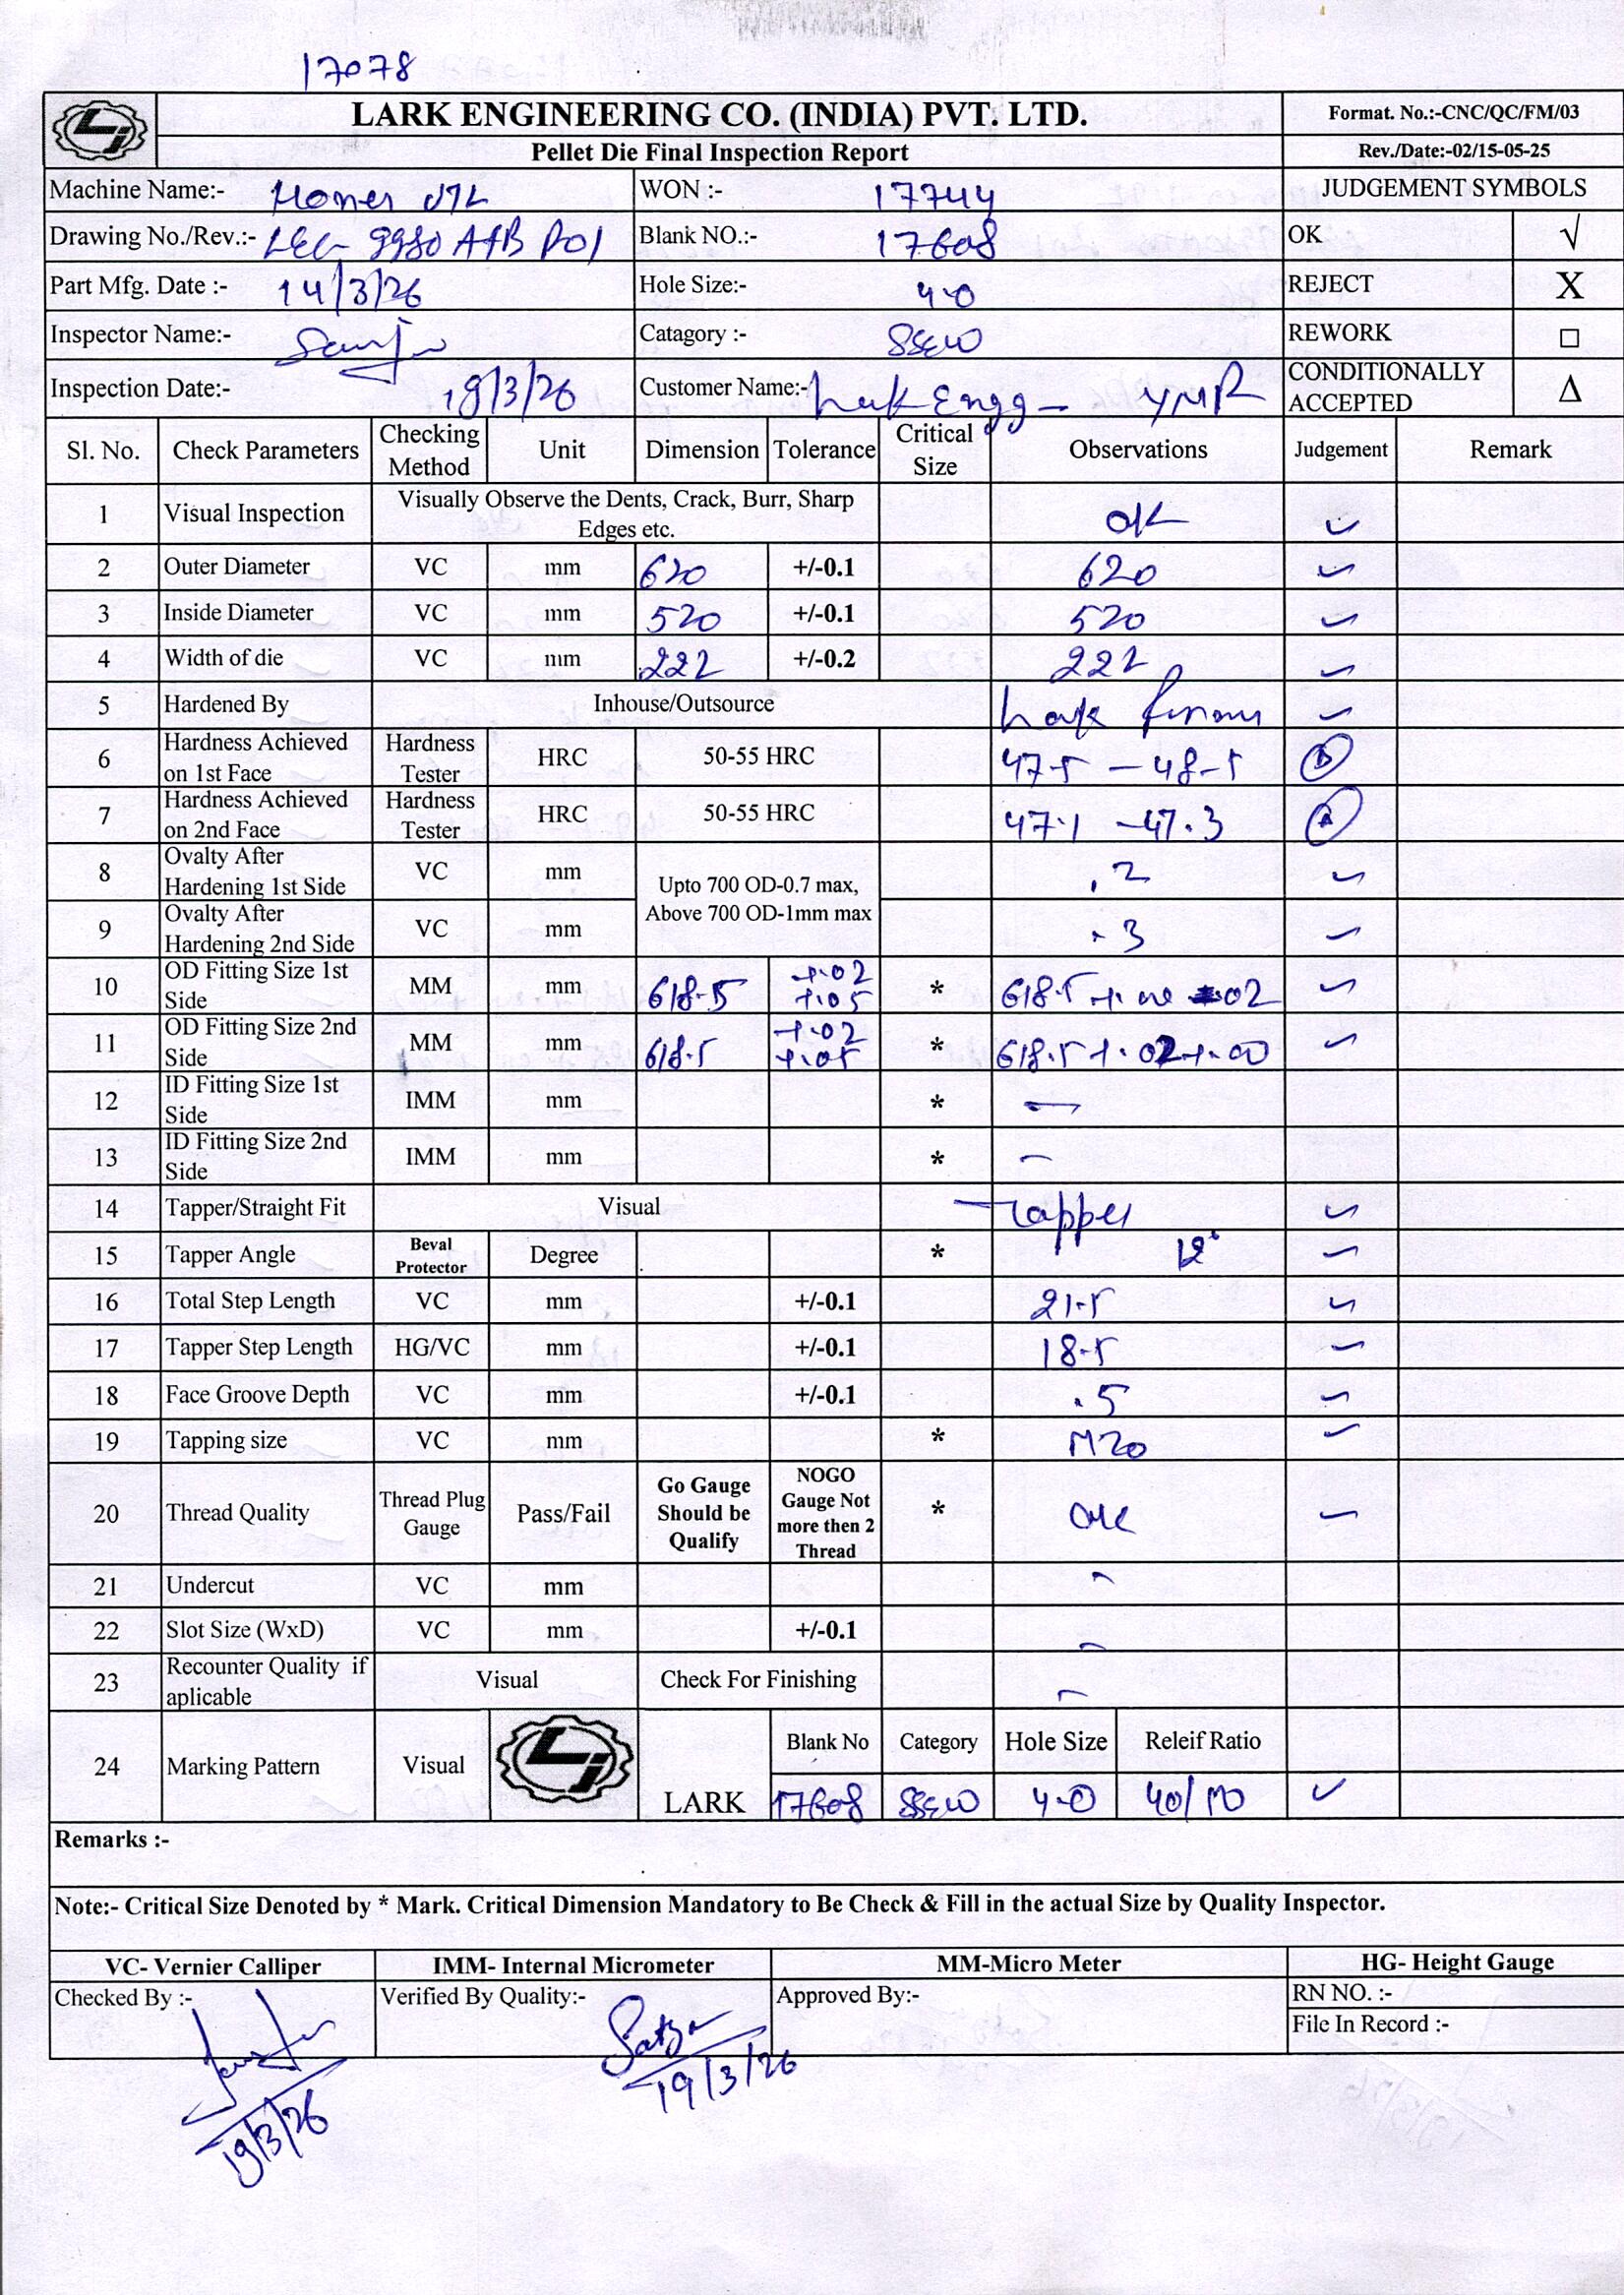 17078
LARK ENGINEERING CO. (INDIA) PVT. LTD.
Format. No.:-CNC/QC/FM/03
Pellet Die Final Inspection Report
Rev./Date:-02/15-05-25
Machine Name:- WON :- 17744 JUDGEMENT SYMBOLS
Drawing No./Rev.:- LEC- 9980 A+B P01 Blank NO.:- 17608 OK √
Part Mfg. Date :- 14/3/26 Hole Size:- 4.0 REJECT X
Inspector Name:- Catagory :- REWORK □
Inspection Date:- 19/3/26 Customer Name:- Lark Engg - YNR CONDITIONALLY ACCEPTED Δ
Sl. No. Check Parameters Checking Method Unit Dimension Tolerance Critical Size Observations Judgement Remark
1 Visual Inspection Visually Observe the Dents, Crack, Burr, Sharp Edges etc. OK ✓
2 Outer Diameter VC mm 620 +/-0.1 620 ✓
3 Inside Diameter VC mm 520 +/-0.1 520 ✓
4 Width of die VC mm 222 +/-0.2 222 ✓
5 Hardened By Inhouse/Outsource Lark ✓
6 Hardness Achieved on 1st Face Hardness Tester HRC 50-55 HRC 47.5 - 48.5
7 Hardness Achieved on 2nd Face Hardness Tester HRC 50-55 HRC 47.1 - 47.3
8 Ovalty After Hardening 1st Side VC mm Upto 700 OD-0.7 max, Above 700 OD-1mm max .2 ✓
9 Ovalty After Hardening 2nd Side VC mm .3 ✓
10 OD Fitting Size 1st Side MM mm 618.5 +.02 +.05 * 618.5 ✓
11 OD Fitting Size 2nd Side MM mm 618.5 +.02 +.05 * 618.5 +.02 +.00 ✓
12 ID Fitting Size 1st Side IMM mm * —
13 ID Fitting Size 2nd Side IMM mm * —
14 Tapper/Straight Fit Visual Tapper ✓
15 Tapper Angle Beval Protector Degree * 12° ✓
16 Total Step Length VC mm +/-0.1 21.5 ✓
17 Tapper Step Length HG/VC mm +/-0.1 18.5 ✓
18 Face Groove Depth VC mm +/-0.1 .5 ✓
19 Tapping size VC mm * M20 ✓
20 Thread Quality Thread Plug Gauge Pass/Fail Go Gauge Should be Qualify NOGO Gauge Not more then 2 Thread * OK ✓
21 Undercut VC mm —
22 Slot Size (WxD) VC mm +/-0.1 —
23 Recounter Quality if aplicable Visual Check For Finishing —
24 Marking Pattern Visual LARK Blank No Category Hole Size Releif Ratio
17608 4.0 ✓
Remarks :-
Note:- Critical Size Denoted by * Mark. Critical Dimension Mandatory to Be Check & Fill in the actual Size by Quality Inspector.
VC- Vernier Calliper IMM- Internal Micrometer MM-Micro Meter HG- Height Gauge
Checked By :- Verified By Quality:- Approved By:- RN NO. :-
File In Record :-
Satya
19/3/26
19/3/26